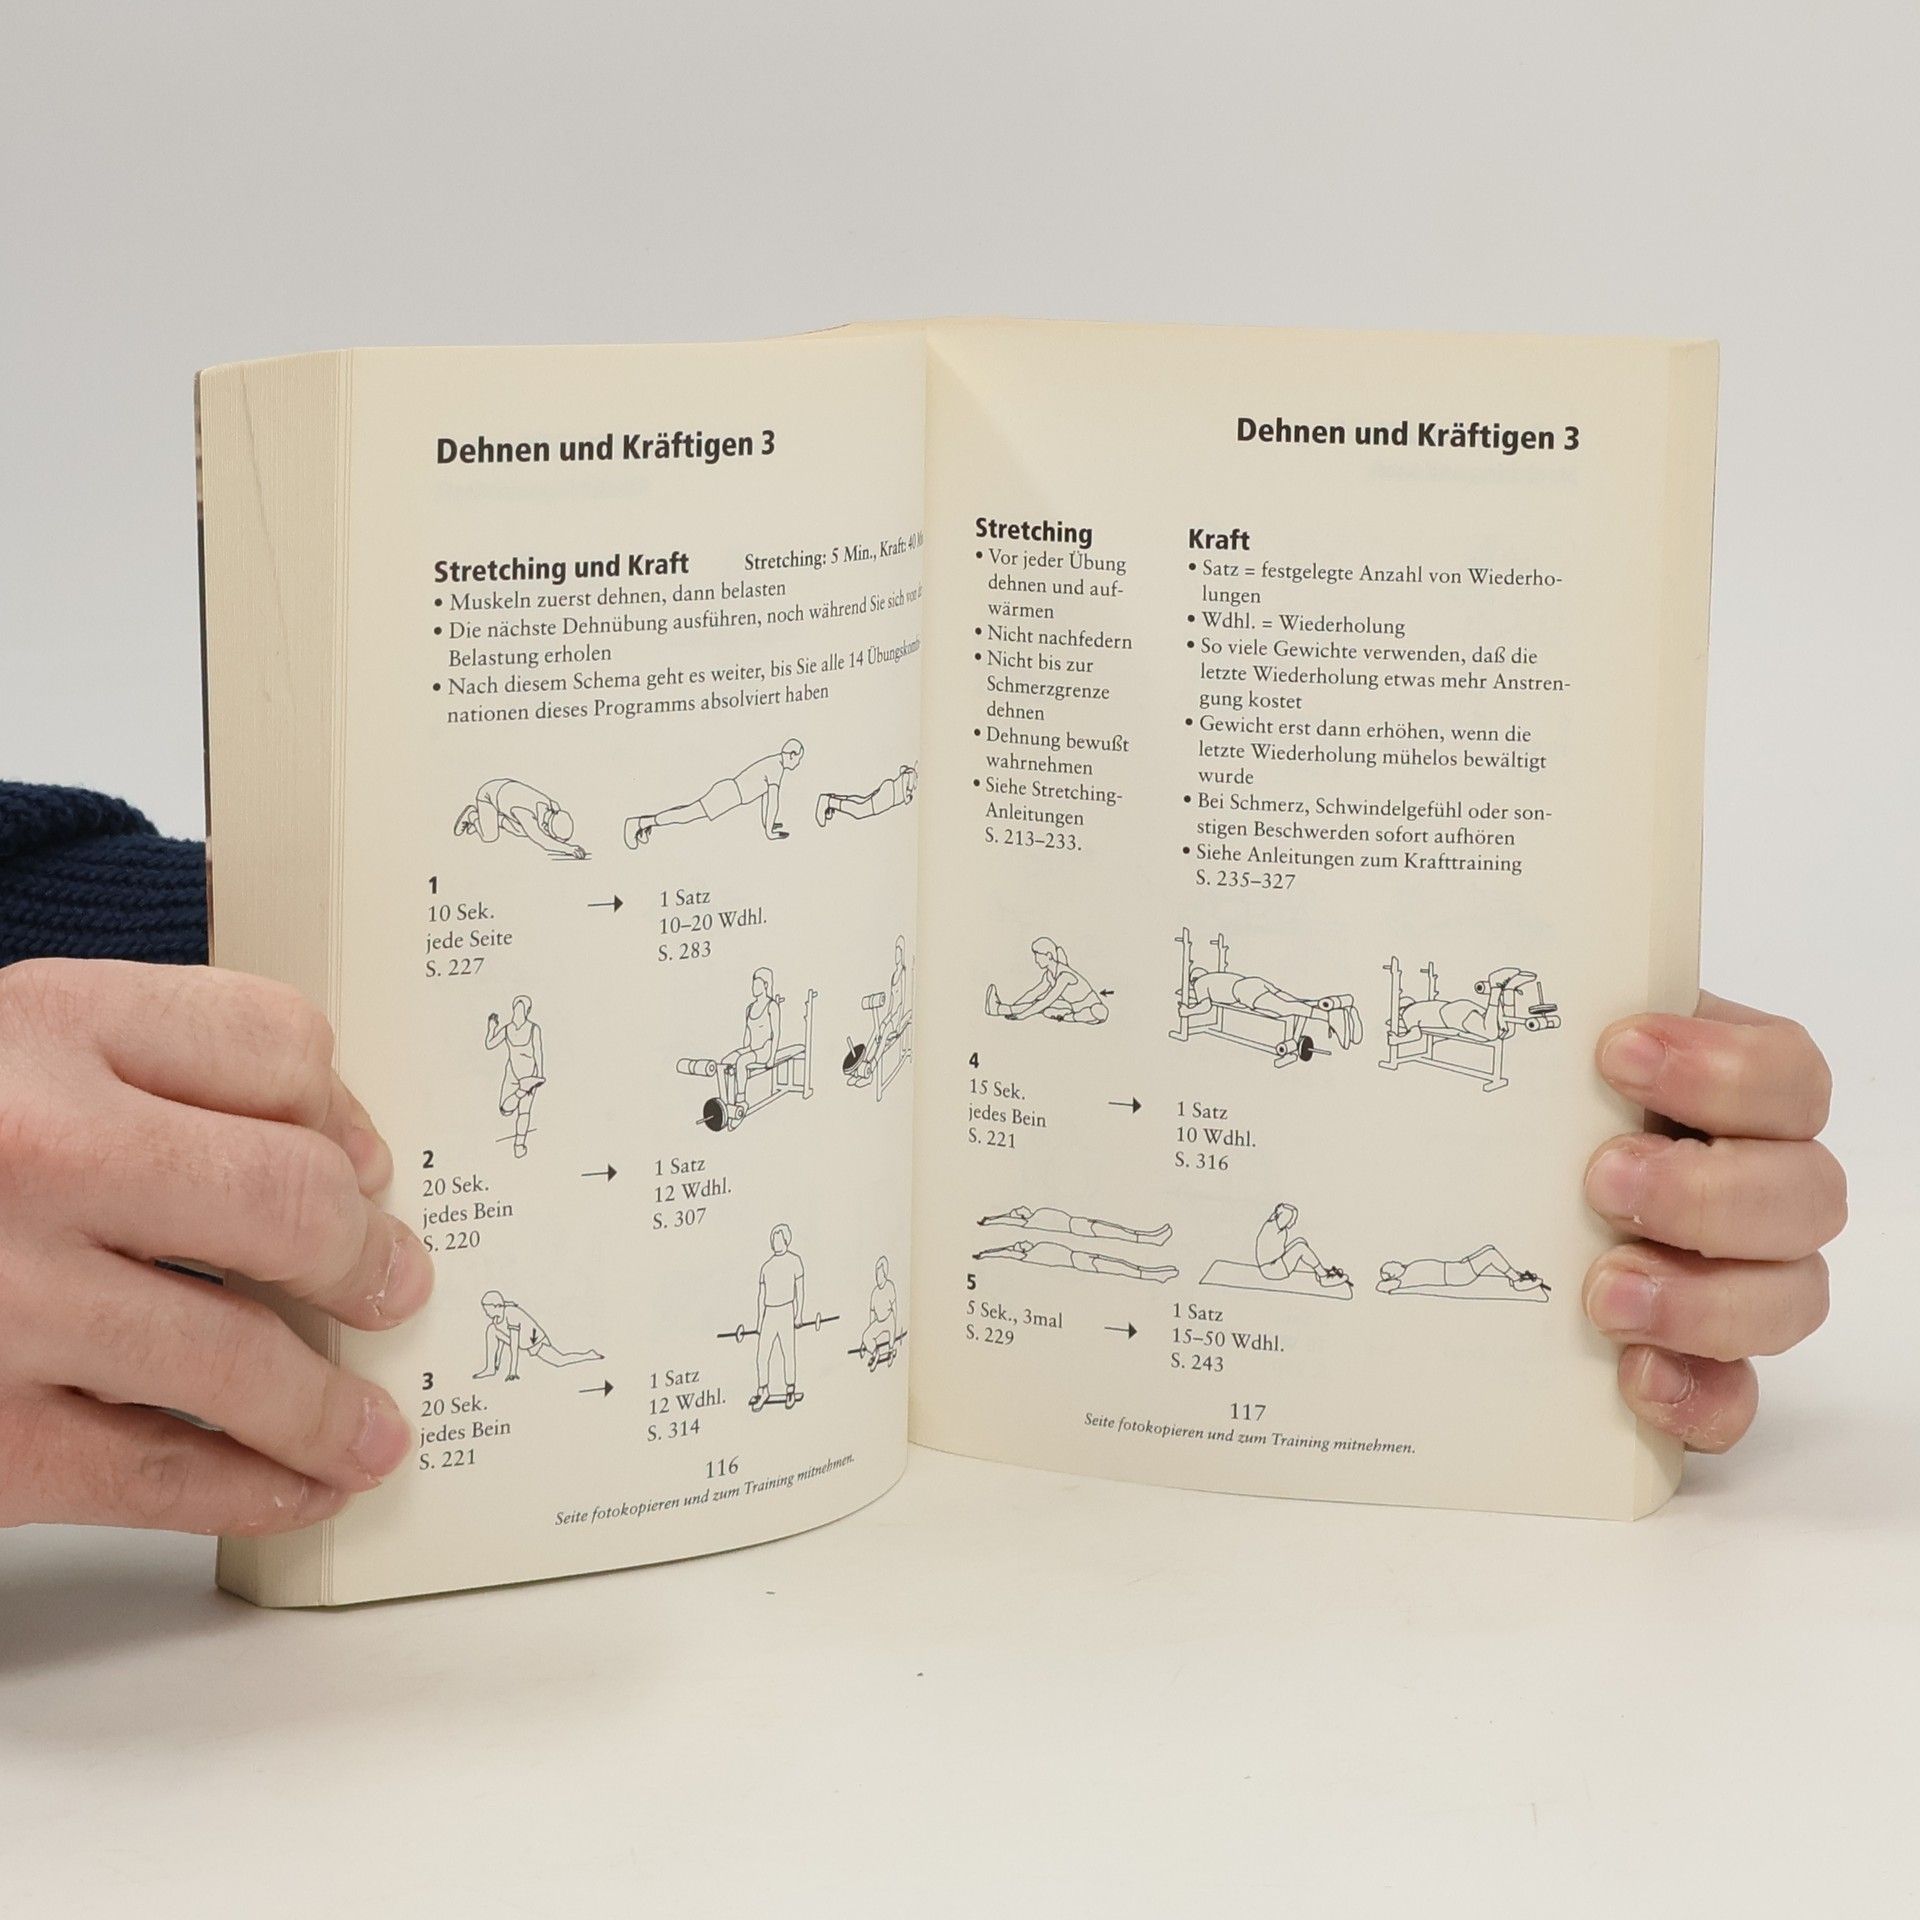 Dehnen und Kräftigen 3
Stretching und Kraft Stretching: 5 Min., Kraft: 40
• Muskeln zuerst dehnen, dann belasten
• Die nächste Dehnübung ausführen, noch während Sie sich von
Belastung erholen
• Nach diesem Schema geht es weiter, bis Sie alle 14
nationen dieses Programms absolviert haben
1
10 Sek.
jede Seite
S. 227
→
1 Satz
10–20 Wdhl.
S. 283
2
20 Sek.
jedes Bein
S. 220
→
1 Satz
12 Wdhl.
S. 307
3
20 Sek.
jedes Bein
S. 221
→
1 Satz
12 Wdhl.
S. 314
116
Seite fotokopieren und zum Training mitnehmen.
Dehnen und Kräftigen 3
Stretching
• Vor jeder Übung
dehnen und auf-
wärmen
• Nicht nachfedern
• Nicht bis zur
Schmerzgrenze
dehnen
• Dehnung bewußt
wahrnehmen
• Siehe Stretching-
Anleitungen
S. 213–233.
Kraft
• Satz = festgelegte Anzahl von Wiederho-
lungen
• Wdhl. = Wiederholung
• So viele Gewichte verwenden, daß die
letzte Wiederholung etwas mehr Anstren-
gung kostet
• Gewicht erst dann erhöhen, wenn die
letzte Wiederholung mühelos bewältigt
wurde
• Bei Schmerz, Schwindelgefühl oder son-
stigen Beschwerden sofort aufhören
• Siehe Anleitungen zum Krafttraining
S. 235–327
4
15 Sek.
jedes Bein
S. 221
→
1 Satz
10 Wdhl.
S. 316
5
5 Sek., 3mal
S. 229
→
1 Satz
15–50 Wdhl.
S. 243
117
Seite fotokopieren und zum Training mitnehmen.